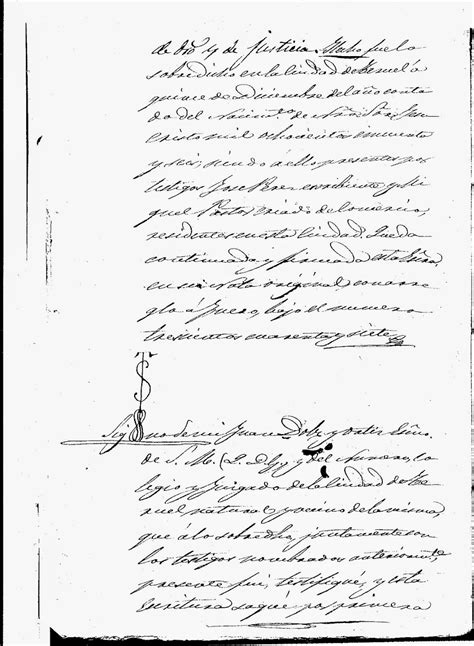 de dro y de justicia. Hecho fue lo
sobredicho en la Ciudad de Teruel á
quince de Diciembre del año conta
do del Nacimto. de Ntro. Sor. Jesu
cristo mil ochocientos cincuenta
y seis, siendo á ello presentes por
testigos José Perez escribiente y Mi
guel Pastor criado de Comercio,
residentes en esta Ciudad. Queda
continuada y firmada esta Escra.
en su nota original con arre
glo á fuero, bajo el numero
trescientos cuarenta y siete
Sig no de mi Juan Esno.
de S. M. (Q. D. G.) y del Numero, Co
legio y Juzgado de la Ciudad de Te
ruel natural y vecino de la misma,
que á lo sobredho, juntamente con
los testigos nombrados anteriormte.
presente fui, testifiqué, y esta
escritura saqué por primera